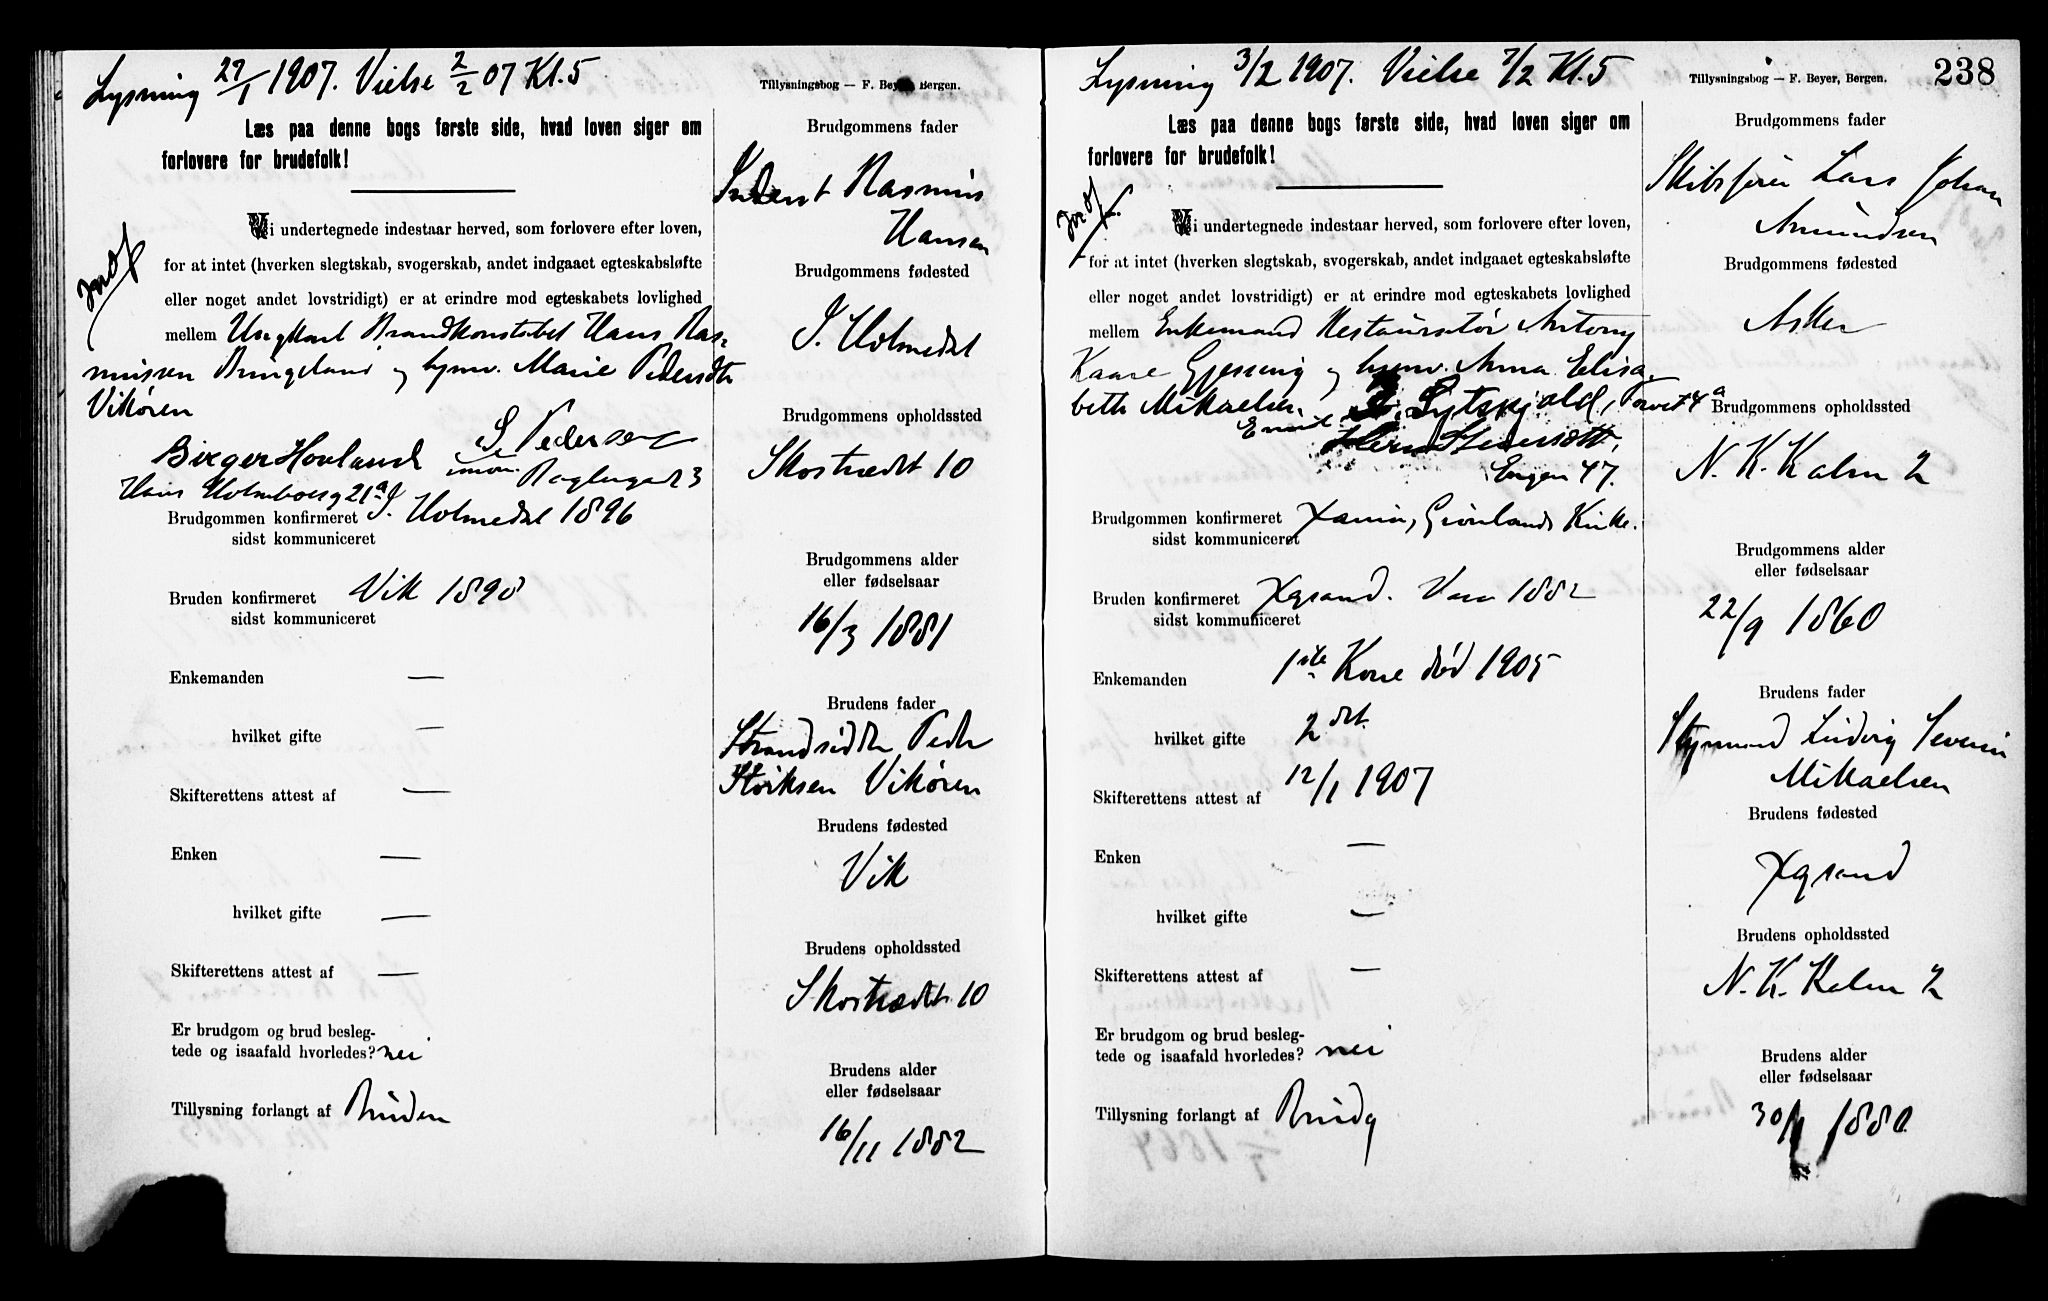 Lysning 27/1 1907. Vielse 2/2 07 Kl. 5
Tillysningsbog — F. Beyer, Bergen.
Læs paa denne bogs første side, hvad loven siger om
forlovere for brudefolk!
Vi undertegnede indestaar herved, som forlovere efter loven,
for at intet (hverken slegtskab, svogerskab, andet indgaaet egteskabsløfte
eller noget andet lovstridigt) er at erindre mod egteskabets lovlighed
mellem Ungkarl Brandkonstabel Hans Ras-
mussen Bringeland og hpmv. Marie Pedersdtr
Vikøren
Birger Hovland S. Pedersen
Hans Holmboesg 21a
Brudgommen konfirmeret I. Holmedal 1896
sidst kommuniceret
Bruden konfirmeret Vik 1898
sidst kommuniceret
Enkemanden —
hvilket gifte —
Skifterettens attest af —
Enken —
hvilket gifte —
Skifterettens attest af —
Er brudgom og brud beslegtede
tede og isaafald hvorledes? nei
Tillysning forlangt af Bruden
Brudgommens fader
Rasmus
Hansen
Brudgommens fødested
I. Holmedal
Brudgommens opholdssted
Skostrædet 10
Brudgommens alder
eller fødselsaar
16/3 1881
Brudens fader
Strandsidder Peder
Vikøren
Brudens fødested
Vik
Brudens opholdssted
Skostrædet 10
Brudens alder
eller fødselsaar
16/11 1882
Lysning 3/2 1907. Vielse 7/2 Kl. 5
Tillysningsbog — F. Beyer, Bergen.
238
Læs paa denne bogs første side, hvad loven siger om
forlovere for brudefolk!
Vi undertegnede indestaar herved, som forlovere efter loven,
for at intet (hverken slegtskab, svogerskab, andet indgaaet egteskabsløfte
eller noget andet lovstridigt) er at erindre mod egteskabets lovlighed
mellem Enkemand Restauratør Antony
Kaare Gjessing og hpmv. Anna Elisa-
beth Mikaelsen Emil Lytskjold, Torvet 4a
Engen 47.
Brudgommen konfirmeret Xania, Grønlands Kirke.
sidst kommuniceret
Bruden konfirmeret Xqsand. 1882
sidst kommuniceret
Enkemanden 1ste Kone død 1905
hvilket gifte 2det
Skifterettens attest af 12/1 1907
Enken —
hvilket gifte —
Skifterettens attest af —
Er brudgom og brud besleg-
tede og isaafald hvorledes? nei
Tillysning forlangt af Brudg
Brudgommens fader
Skibsfører Lars Johan
Amundsen
Brudgommens fødested
Asker
Brudgommens opholdssted
N. K. Kalm 2
Brudgommens alder
eller fødselsaar
22/9 1860
Brudens fader
Styrmand Ludvig Severin
Mikaelsen
Brudens fødested
Xqsand
Brudens opholdssted
N. K. Kalm 2
Brudens alder
eller fødselsaar
1880